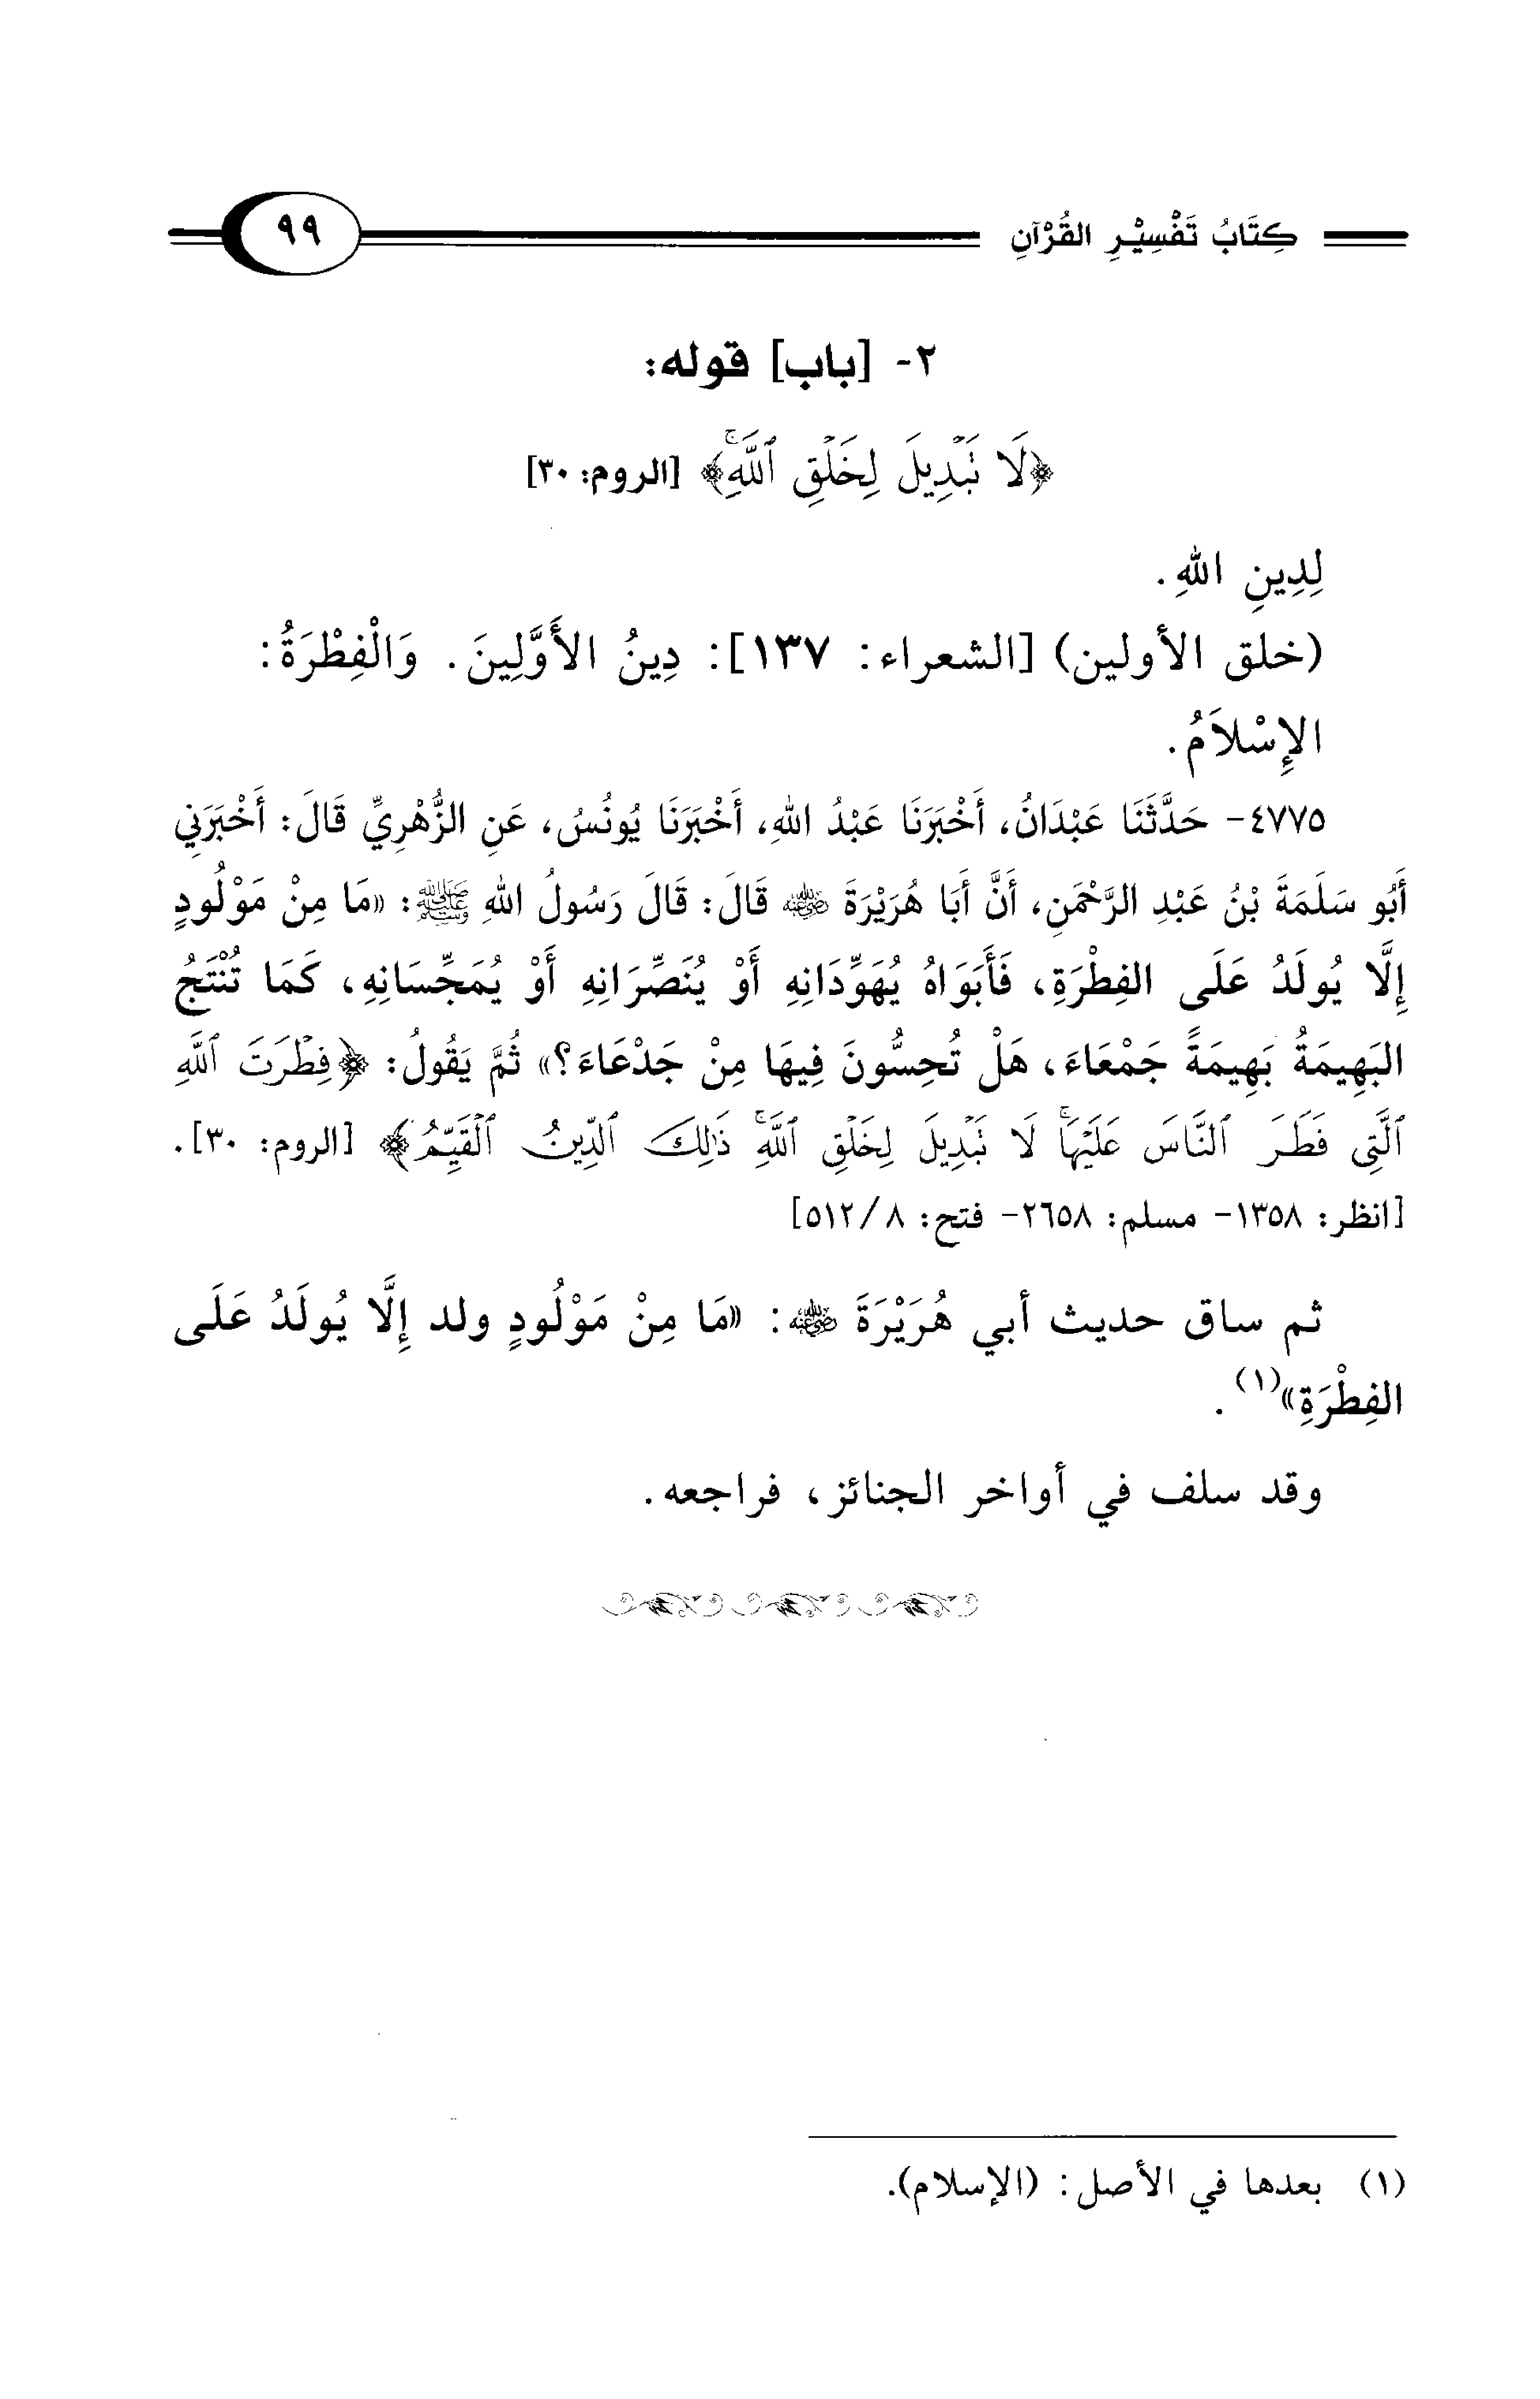 كِتَابُ تَفْسِيْرِ القُرْآنِ ٩٩
٢- [باب] قوله:
﴿لَا نَبْدِيلَ لِخَلْقِ ٱللَّهِۚ﴾ [الروم: ٣٠]
لِدِينِ اللهِ.
(خلق الأولين) [الشعراء: ١٣٧]: دِينُ الأَوَّلِينَ. وَالْفِطْرَةُ:
الإِسْلاَمُ.
٤٧٧٥- حَدَّثَنَا عَبْدَانُ، أَخْبَرَنَا عَبْدُ اللهِ، أَخْبَرَنَا يُونُسُ، عَنِ الزُّهْرِيِّ قَالَ: أَخْبَرَنِي
أَبُو سَلَمَةَ بْنُ عَبْدِ الرَّحْمَنِ، أَنَّ أَبَا هُرَيْرَةَ رضي الله عنه قَالَ: قَالَ رَسُولُ اللهِ ﷺ: «مَا مِنْ مَوْلُودٍ
إِلَّا يُولَدُ عَلَى الفِطْرَةِ، فَأَبَوَاهُ يُهَوِّدَانِهِ أَوْ يُنَصِّرَانِهِ أَوْ يُمَجِّسَانِهِ، كَمَا تُنْتَجُ
البَهِيمَةُ بَهِيمَةً جَمْعَاءَ، هَلْ تُحِسُّونَ فِيهَا مِنْ جَدْعَاءَ؟» ثُمَّ يَقُولُ: ﴿فِطْرَتَ ٱللَّهِ
ٱلَّتِي فَطَرَ ٱلنَّاسَ عَلَيْهَاۚ لَا نَبْدِيلَ لِخَلْقِ ٱللَّهِۚ ذَٰلِكَ ٱلدِّينُ ٱلْقَيِّمُ﴾ [الروم: ٣٠].
[انظر: ١٣٥٨- مسلم: ٢٦٥٨- فتح: ٨/ ٥١٢]
ثم ساق حديث أبي هُرَيْرَةَ رضي الله عنه: «مَا مِنْ مَوْلُودٍ ولد إِلَّا يُولَدُ عَلَى
الفِطْرَةِ»(١).
وقد سلف في أواخر الجنائز، فراجعه.
(١) بعدها في الأصل: (الإسلام).